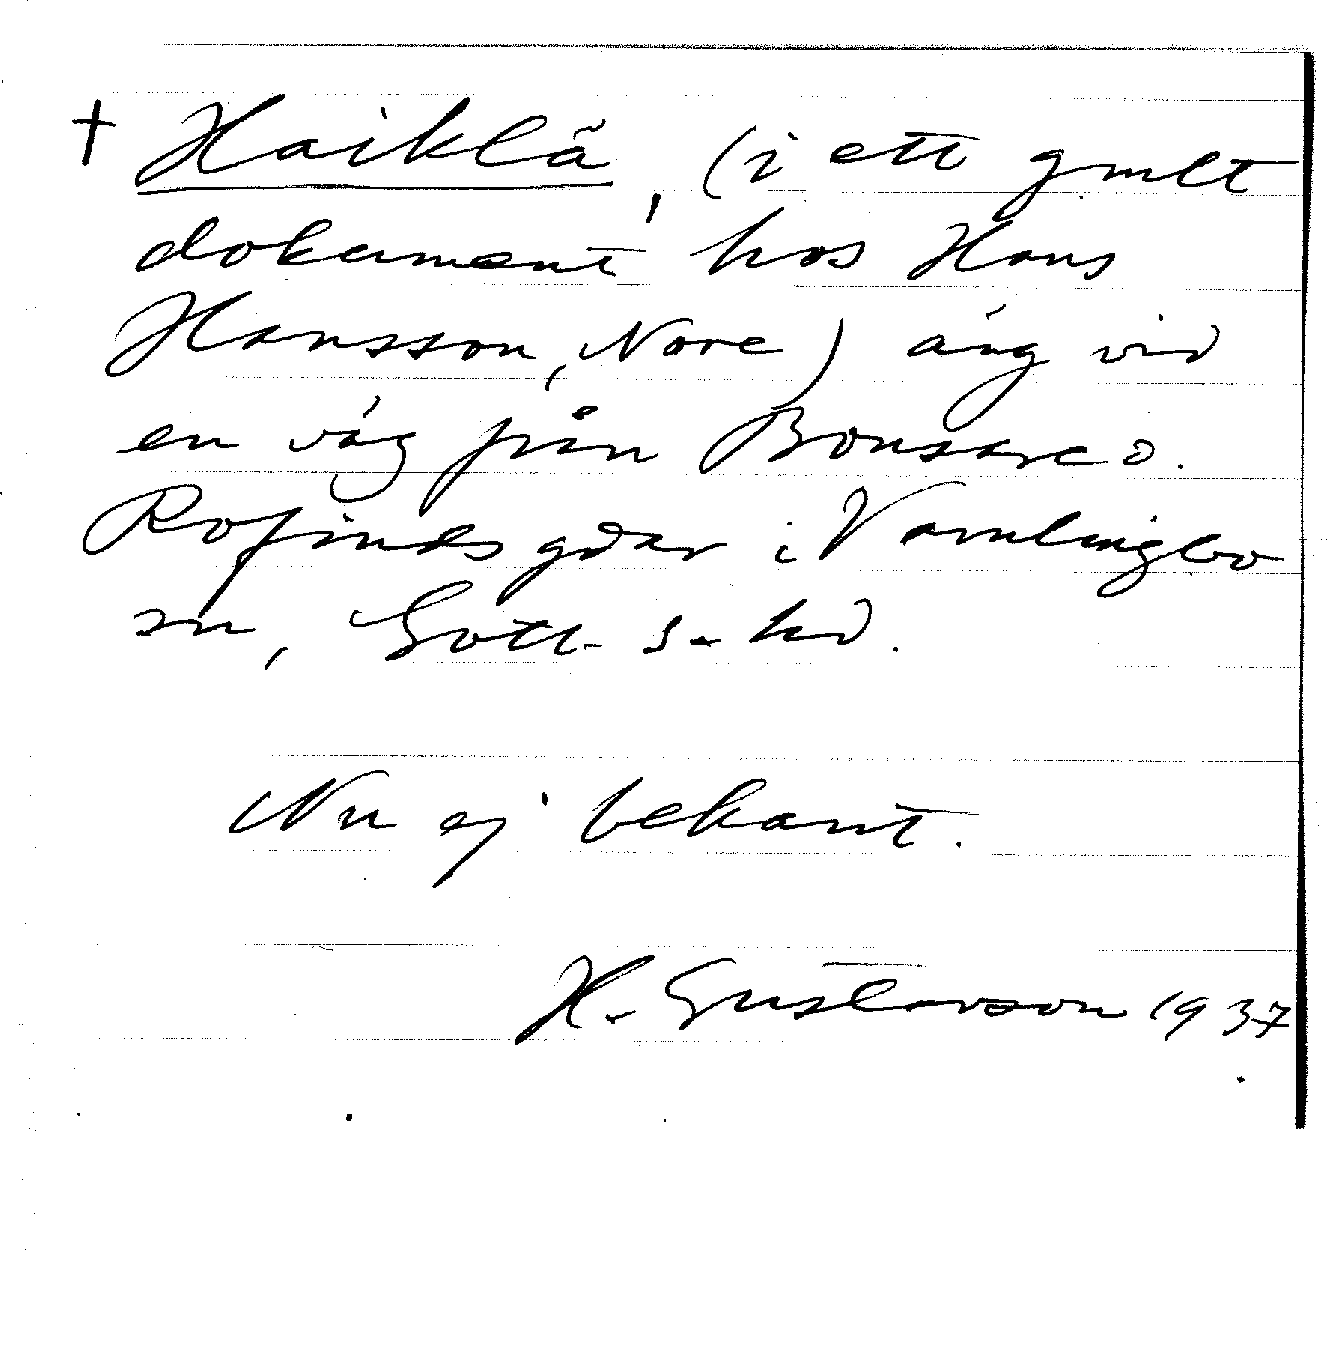 † Haiklä, (i ett gmlt
dokument hos Hans
Hansson, Nore) äng vid
en väg från Bonsarve o.
Rofinds gdar i Vamlingbo
sn, Gotl. s. hd.
Nu ej bekant.
H. Gustavson 1937